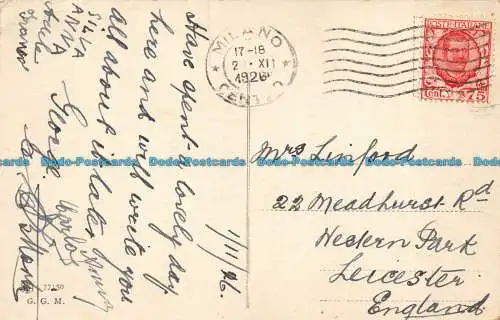 Have spent a lovely day
here and will write you
all about it later.
SILA
ANNA
1/11/26.
MILANO
17-18
2 · XII
1926
CENTRO
POSTE ITALIANE
Cent. 75
Mrs Linford
22 Meadhurst Rd
Western Park
Leicester
England
77150
G. G. M.
Dodo-Postcards Dodo-Postcards Dodo-Postcards Dodo-Postcards